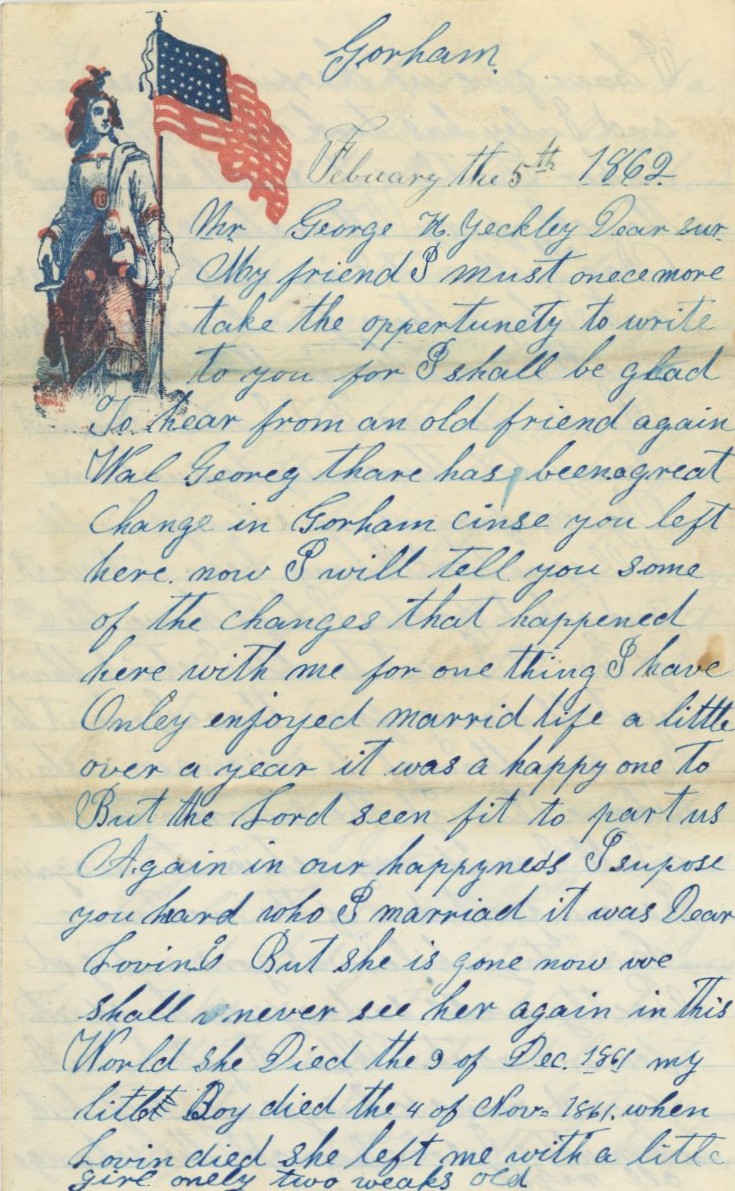 Gorham.
Febuary the 5th 1862
Mr George H. Yeckley Dear sur
My friend I must onece more
take the oppertunety to write
to you for I shall be glad
To hear from an old friend again
Wal Georeg thare has been a great
change in Gorham cinse you left
here. now I will tell you some
of the changes that happened
here with me for one thing I have
Onley enjoyed marrid life a little
over a year it was a happy one to
But the Lord seen fit to part us
Again in our happyness I supose
you hard who I marriad it was Dear
But she is gone now we
shall never see her again in this
World she Died the 9 of Dec. 1861 my
little Boy died the 4 of Nov= 1861, when
Lovin died she left me with a little
girl onely two weaks old